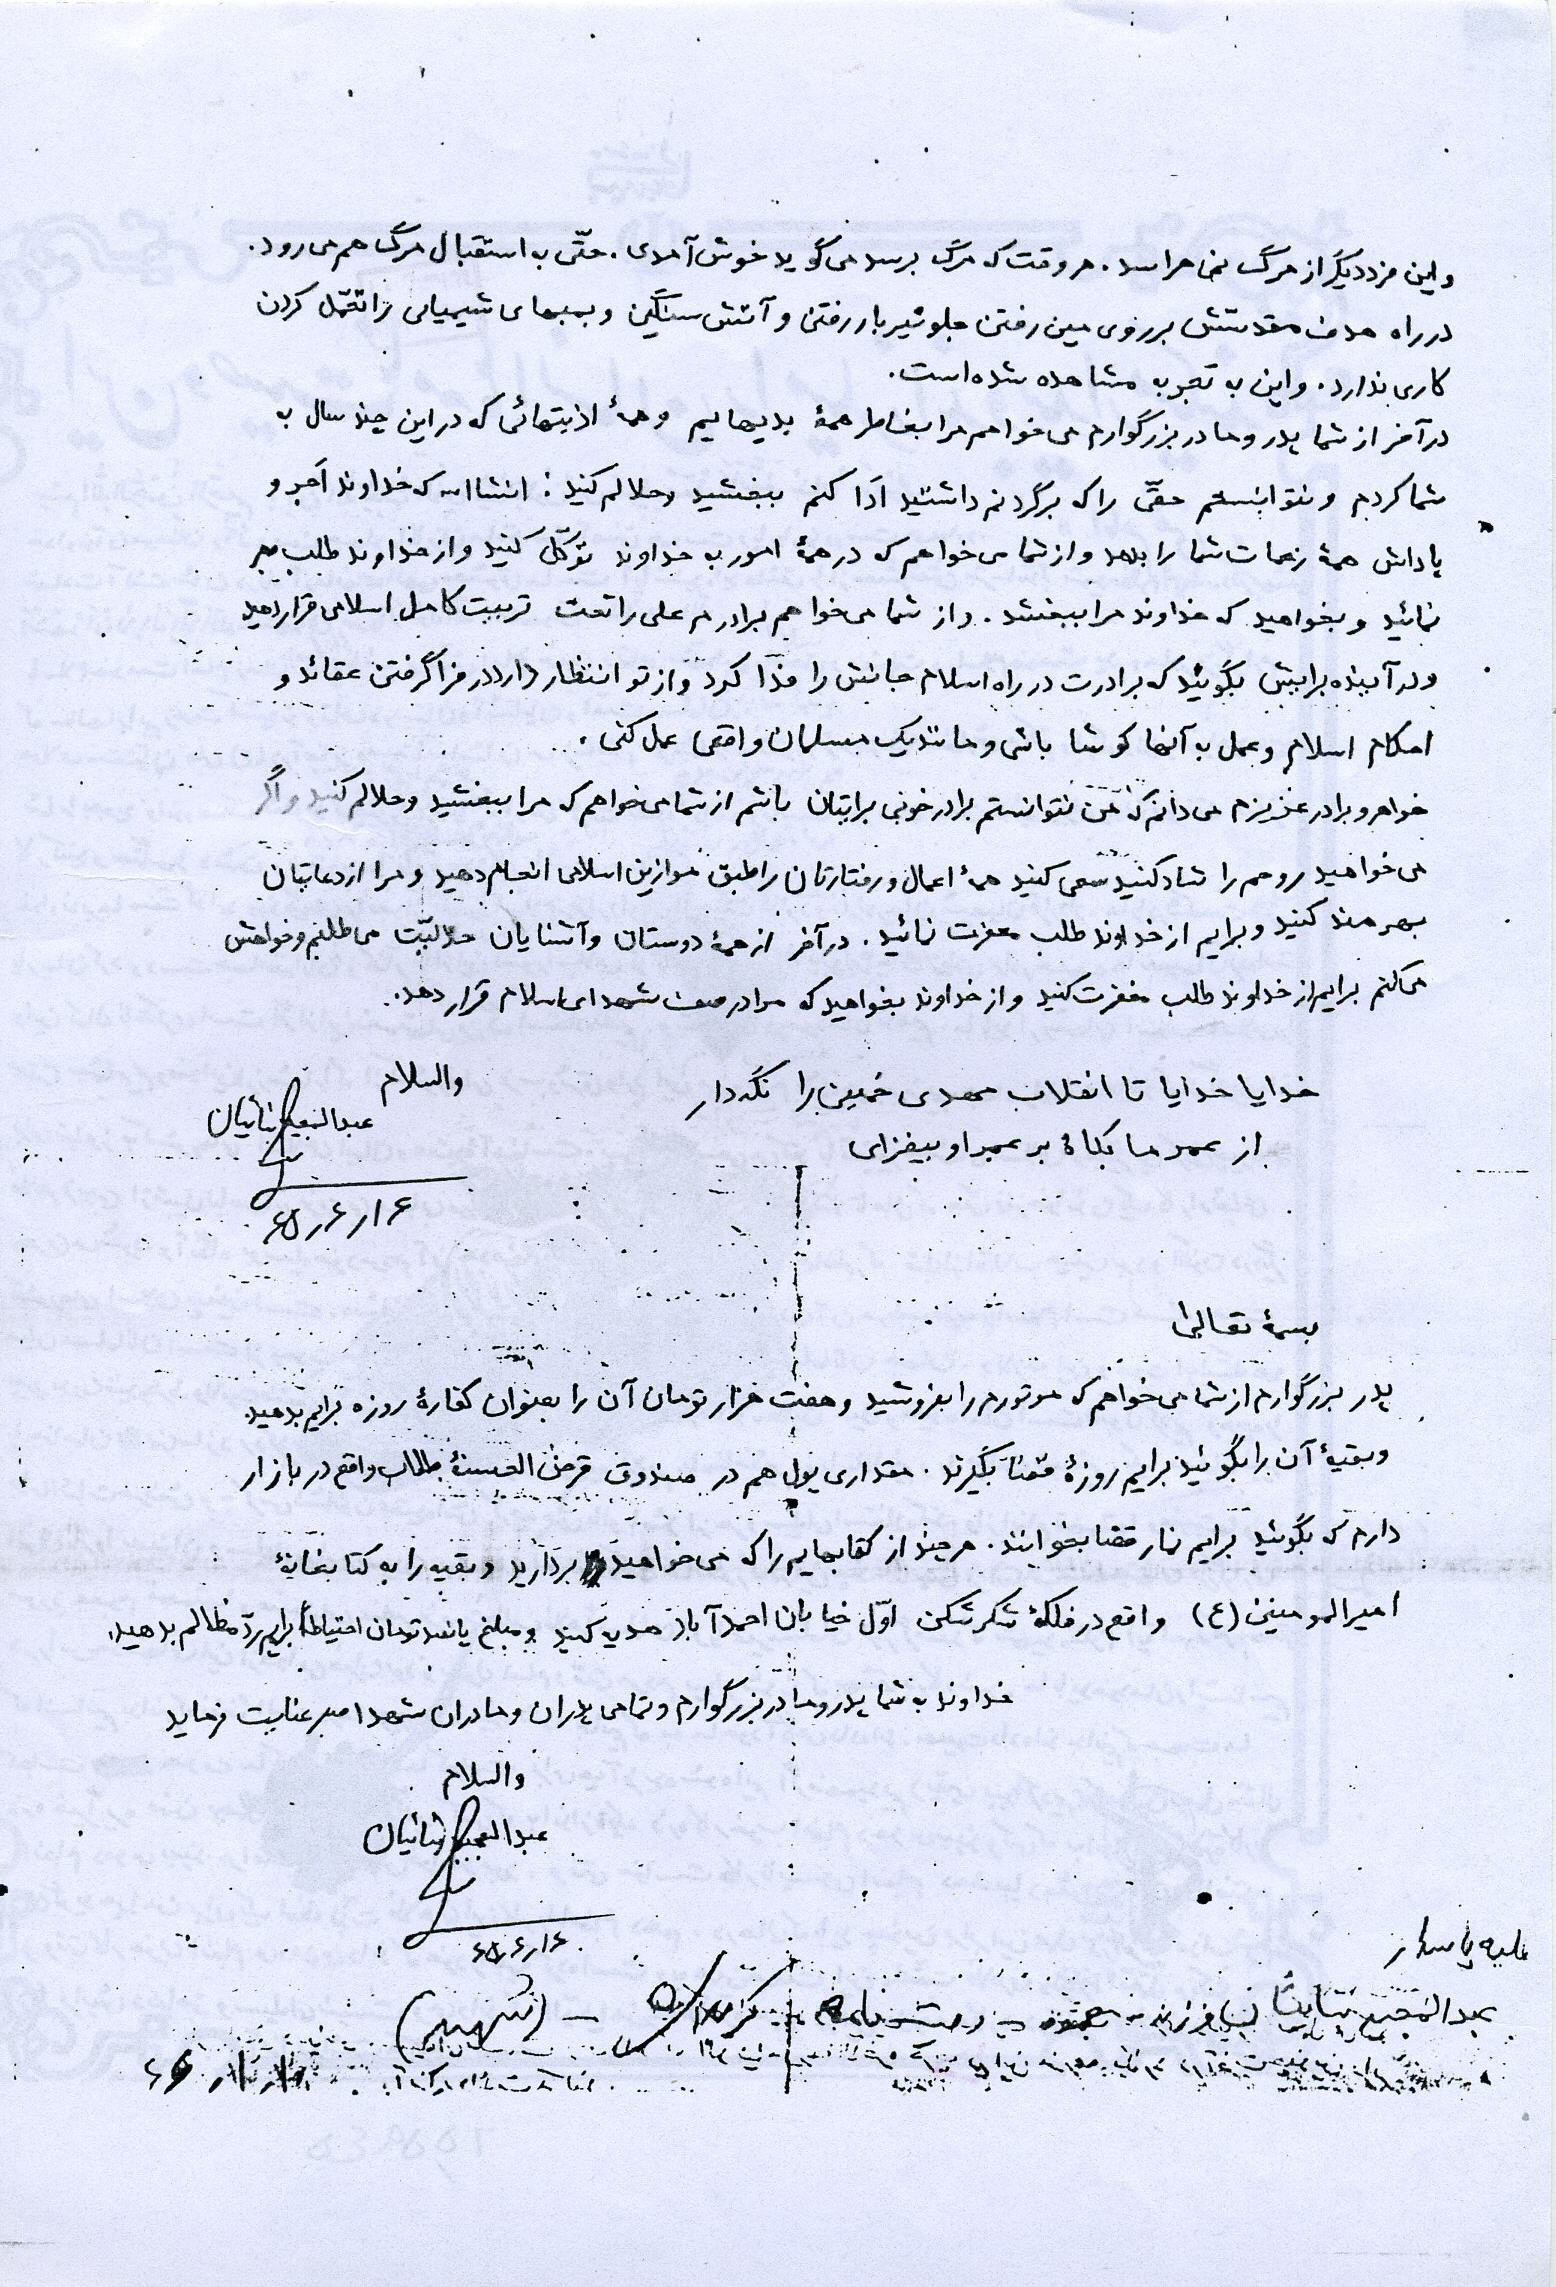 و این مرد دیگر از مرگ نمی‌هراسد. هر وقت که مرگ برسد می‌گوید خوش آمدی. حتّی به استقبال مرگ هم می‌رود.
در راه هدف مقدسش بر روی مین رفتن جلو تیربار رفتن و آتش سنگین و بمبهای شیمیایی را تحمّل کردن
کاری ندارد. و این به تجربه مشاهده شده است.
در آخر از شما پدر و مادر بزرگوارم می‌خواهم مرا بخاطر همهٔ بدیهایم و همهٔ اذیتهائی که در این چند سال به
شما کردم و نتوانستم حقّی را که برگردنم داشتید ادا کنم ببخشید و حلالم کنید: انشااله که خداوند اجر و
پاداش همهٔ زحمات شما را بدهد و از شما می‌خواهم که در همهٔ امور به خداوند توکّل کنید و از خداوند طلب صبر
نمائید و بخواهید که خداوند مرا ببخشد. و از شما می‌خواهم برادرم علی را تحت تربیت کامل اسلامی قرار دهید
و در آینده برایش بگوئید که برادرت در راه اسلام جانش را فدا کرد و از تو انتظار دارد در فراگرفتن عقائد و
احکام اسلام و عمل به آنها کوشا باشی و مانند یک مسلمان واقعی عمل کنی.
خواهر و برادر عزیزم می‌دانم که من نتوانستم برادر خوبی برایتان باشم از شما می‌خواهم که مرا ببخشید و حلالم کنید و اگر
می‌خواهید روحم را شاد کنید سعی کنید همهٔ اعمال و رفتارتان را طبق موازین اسلامی انجام دهید و مرا از دعایتان
بهره‌مند کنید و برایم از خداوند طلب مغفرت نمائید. در آخر از همهٔ دوستان و آشنایان حلالیّت می‌طلبم و خواهش
می‌کنم برایم از خداوند طلب مغفرت کنید و از خداوند بخواهید که مرا در صف شهدای اسلام قرار دهد.
خدایا خدایا تا انقلاب مهدی خمینی را نگه‌دار
والسلام
از عمر ما بکاهٔ بر عمر او بیفزای
عبدالمجید ثنائیان
۶۵/۶/۱۶
بسمهٔ تعالی
پدر بزرگوارم از شما می‌خواهم که موتورم را بفروشید و هفت هزار تومان آن را بعنوان کفارهٔ روزه برایم بدهید.
و بقیهٔ آن را بگوئید برایم روزهٔ قضا بگیرند. مقداری پول هم در صندوق قرض الحسنهٔ واقع در بازار
دارم که بگوئید برایم نماز قضا بخوانند. هر چند از کتابهایم را که می‌خواهید بردارید و بقیه را به کتابخانهٔ
امیرالمومنین (ع) واقع در فلکهٔ شکرشکن اوّل خیابان احمدآباد هدیه کنید و مبلغ پانصد تومان احتیاطاً برایم ردّ مظالم بدهید.
خداوند به شما پدر و مادر بزرگوارم و تمامی پدران و مادران شهدا صبر عنایت فرماید
والسلام
عبدالمجید ثنائیان
۶۵/۶/۱۶
پاسدار
عبدالمجید فرزند (شهید)